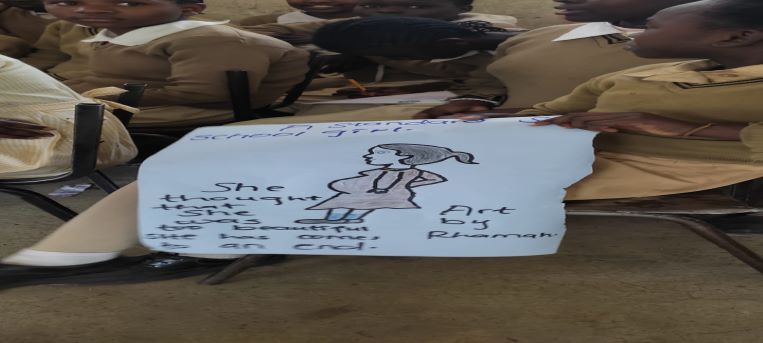 A Standard 8
School girl.
She
thought
that
She
was
too beautiful
She has comes
to an end.
Art
by
Rhamah